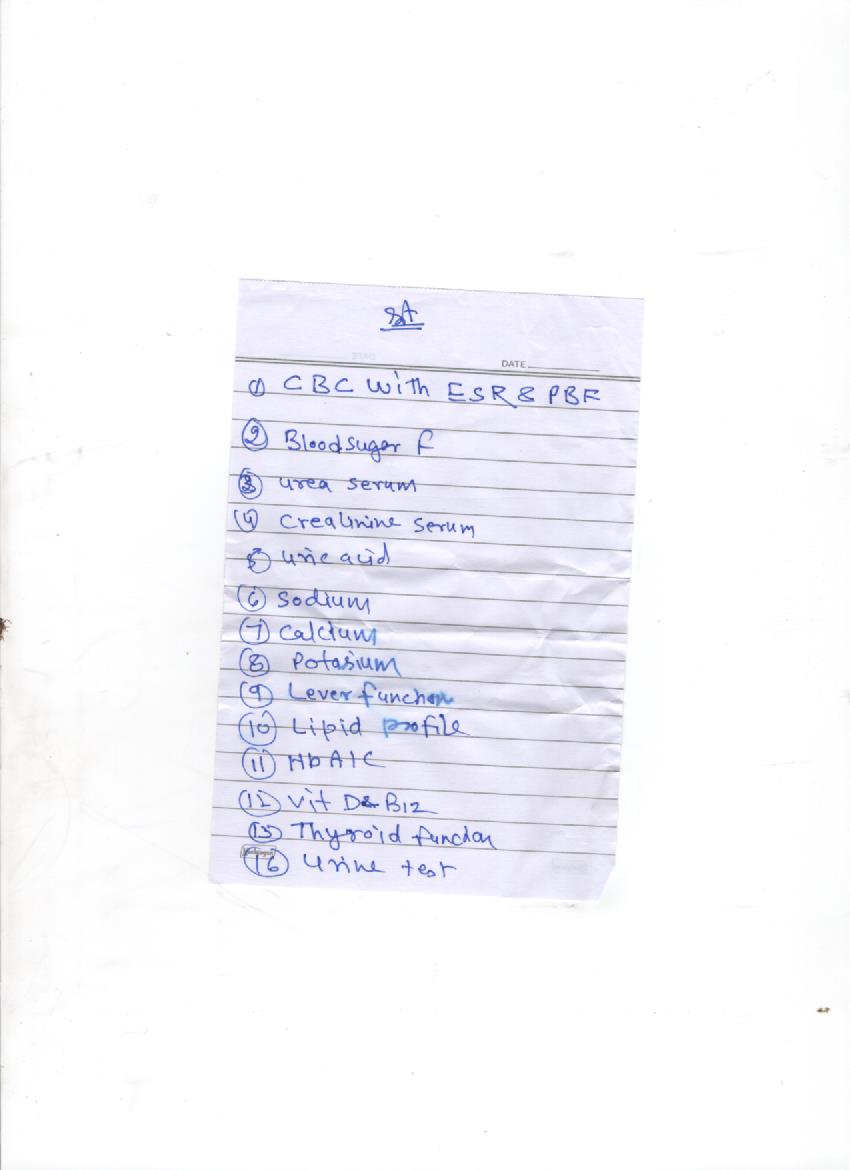 DATE
① CBC with ESR & PBF
② Blood sugar F
③ urea serum
④ Crealinine serum
⑤ uric acid
⑥ Sodium
⑦ Calcium
⑧ Potasium
⑨ Lever function
⑩ Lipid profile
⑪ HbA1C
⑫ Vit D & B12
Thyroid function
⑯ Urine test